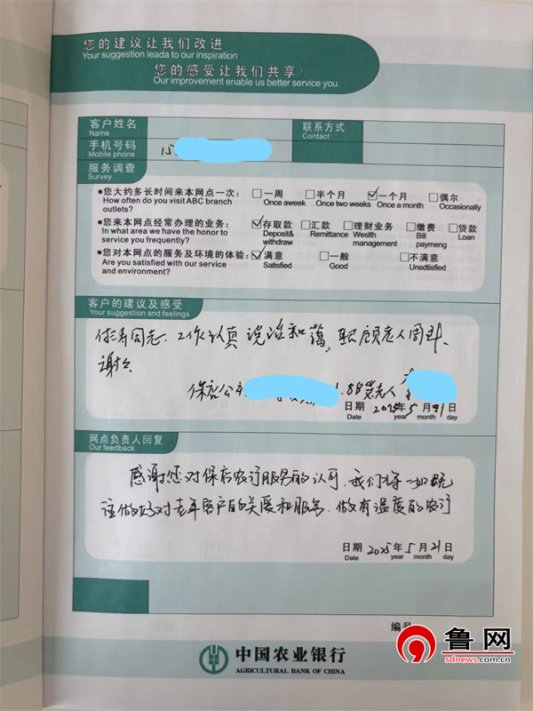 您的建议让我们改进
Your suggestion leada to our inspiration
您的感受让我们共享?
Our improvement enable us better service you.
客户姓名
Name
联系方式
Contact
手机号码
Mobile phone
15
服务调查
Survey
●您大约多长时间来本网点一次: □一周 □半个月 ☑一个月 □偶尔
How often do you visit ABC branch outlets? Once aweek Once two weeks Once a month Occasionally
●您来本网点经常办理的业务: ☑存取款 □汇款 □理财业务 □缴费 □贷款
In what area we have the honor to service you frequently? Deposit& withdraw Remittance Weslth management Bill paymeng Loan
●您对本网点的服务及环境的体验: ☑满意 □一般 □不满意
Are you satisfied with our service and environment? Satisfied Good Unsdtisfied
客户的建议及感受
Your suggestion and feelings
同志.工作认真 说话和蔼,照顾老人周到、
谢谢
保店公 88岁老人
日期 2025年5月21日
Date year month day
网点负责人回复
Our feedback
感谢您对保店农行服务的认可,我们将一如既
往做好对老年客户的关爱和服务.做有温度的农行
日期 2025年5月21日
Date year month day
编号
中国农业银行
AGRICULTURAL BANK OF CHINA
鲁网
sdnews.com.cn